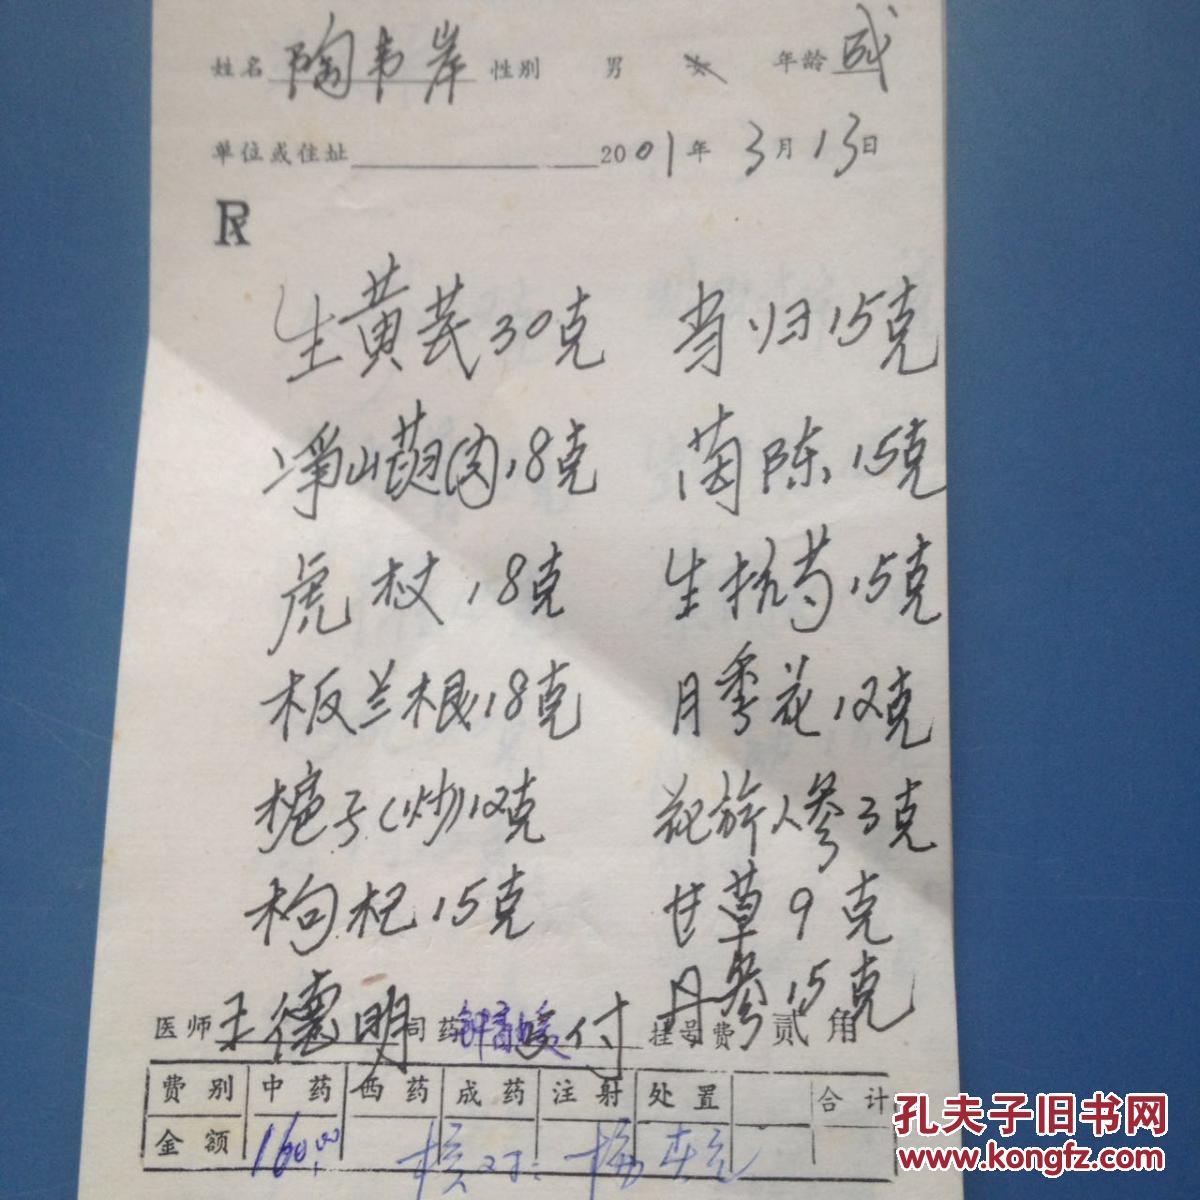 姓名 陶韦岸 性别 男 女 年龄 成
单位或住址 2001年3月13日
R
生黄芪30克 当归15克
净山萸肉18克 茵陈15克
虎杖18克 生杭芍15克
板兰根18克 月季花12克
栀子(炒)12克 花旗人参3克
枸杞15克 甘草9克
丹参15克
医师 王德明 司药 付 挂号费 贰角
费别 中药 西药 成药 注射 处置 合计
金额 160.00
核对:
孔夫子旧书网
www.kongfz.com